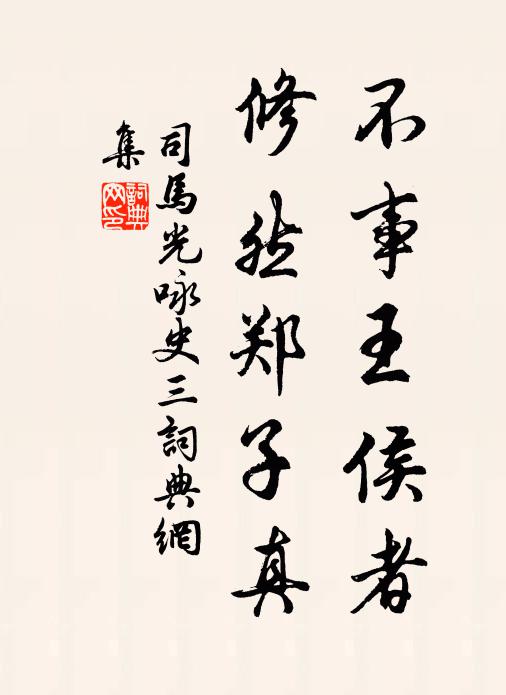 不事王侯者
修然郑子真
司馬光咏史三詞典網
集
詞典
网印